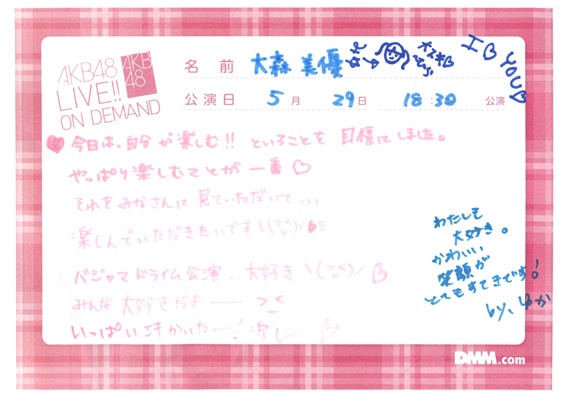 AKB48
LIVE!!
ON DEMAND
AKB
48
名前 大森美優
大スキ
I ♡ YOU♡
公演日 5月 29日 18:30 公演
♥今日は、自分が楽しむ!!ということを目標にしました。
やっぱり楽しむことが一番♡
それをみなさんに見ていただいて...
楽しんでいただきたいです
パジャマドライブ公演、大好き
みんな大好きだぉ── >_<
いっぱい汗かいたー!
わたしも
大好き。
かわいい
笑顔が
とてもすてきです!
by、ゆか
DMM.com